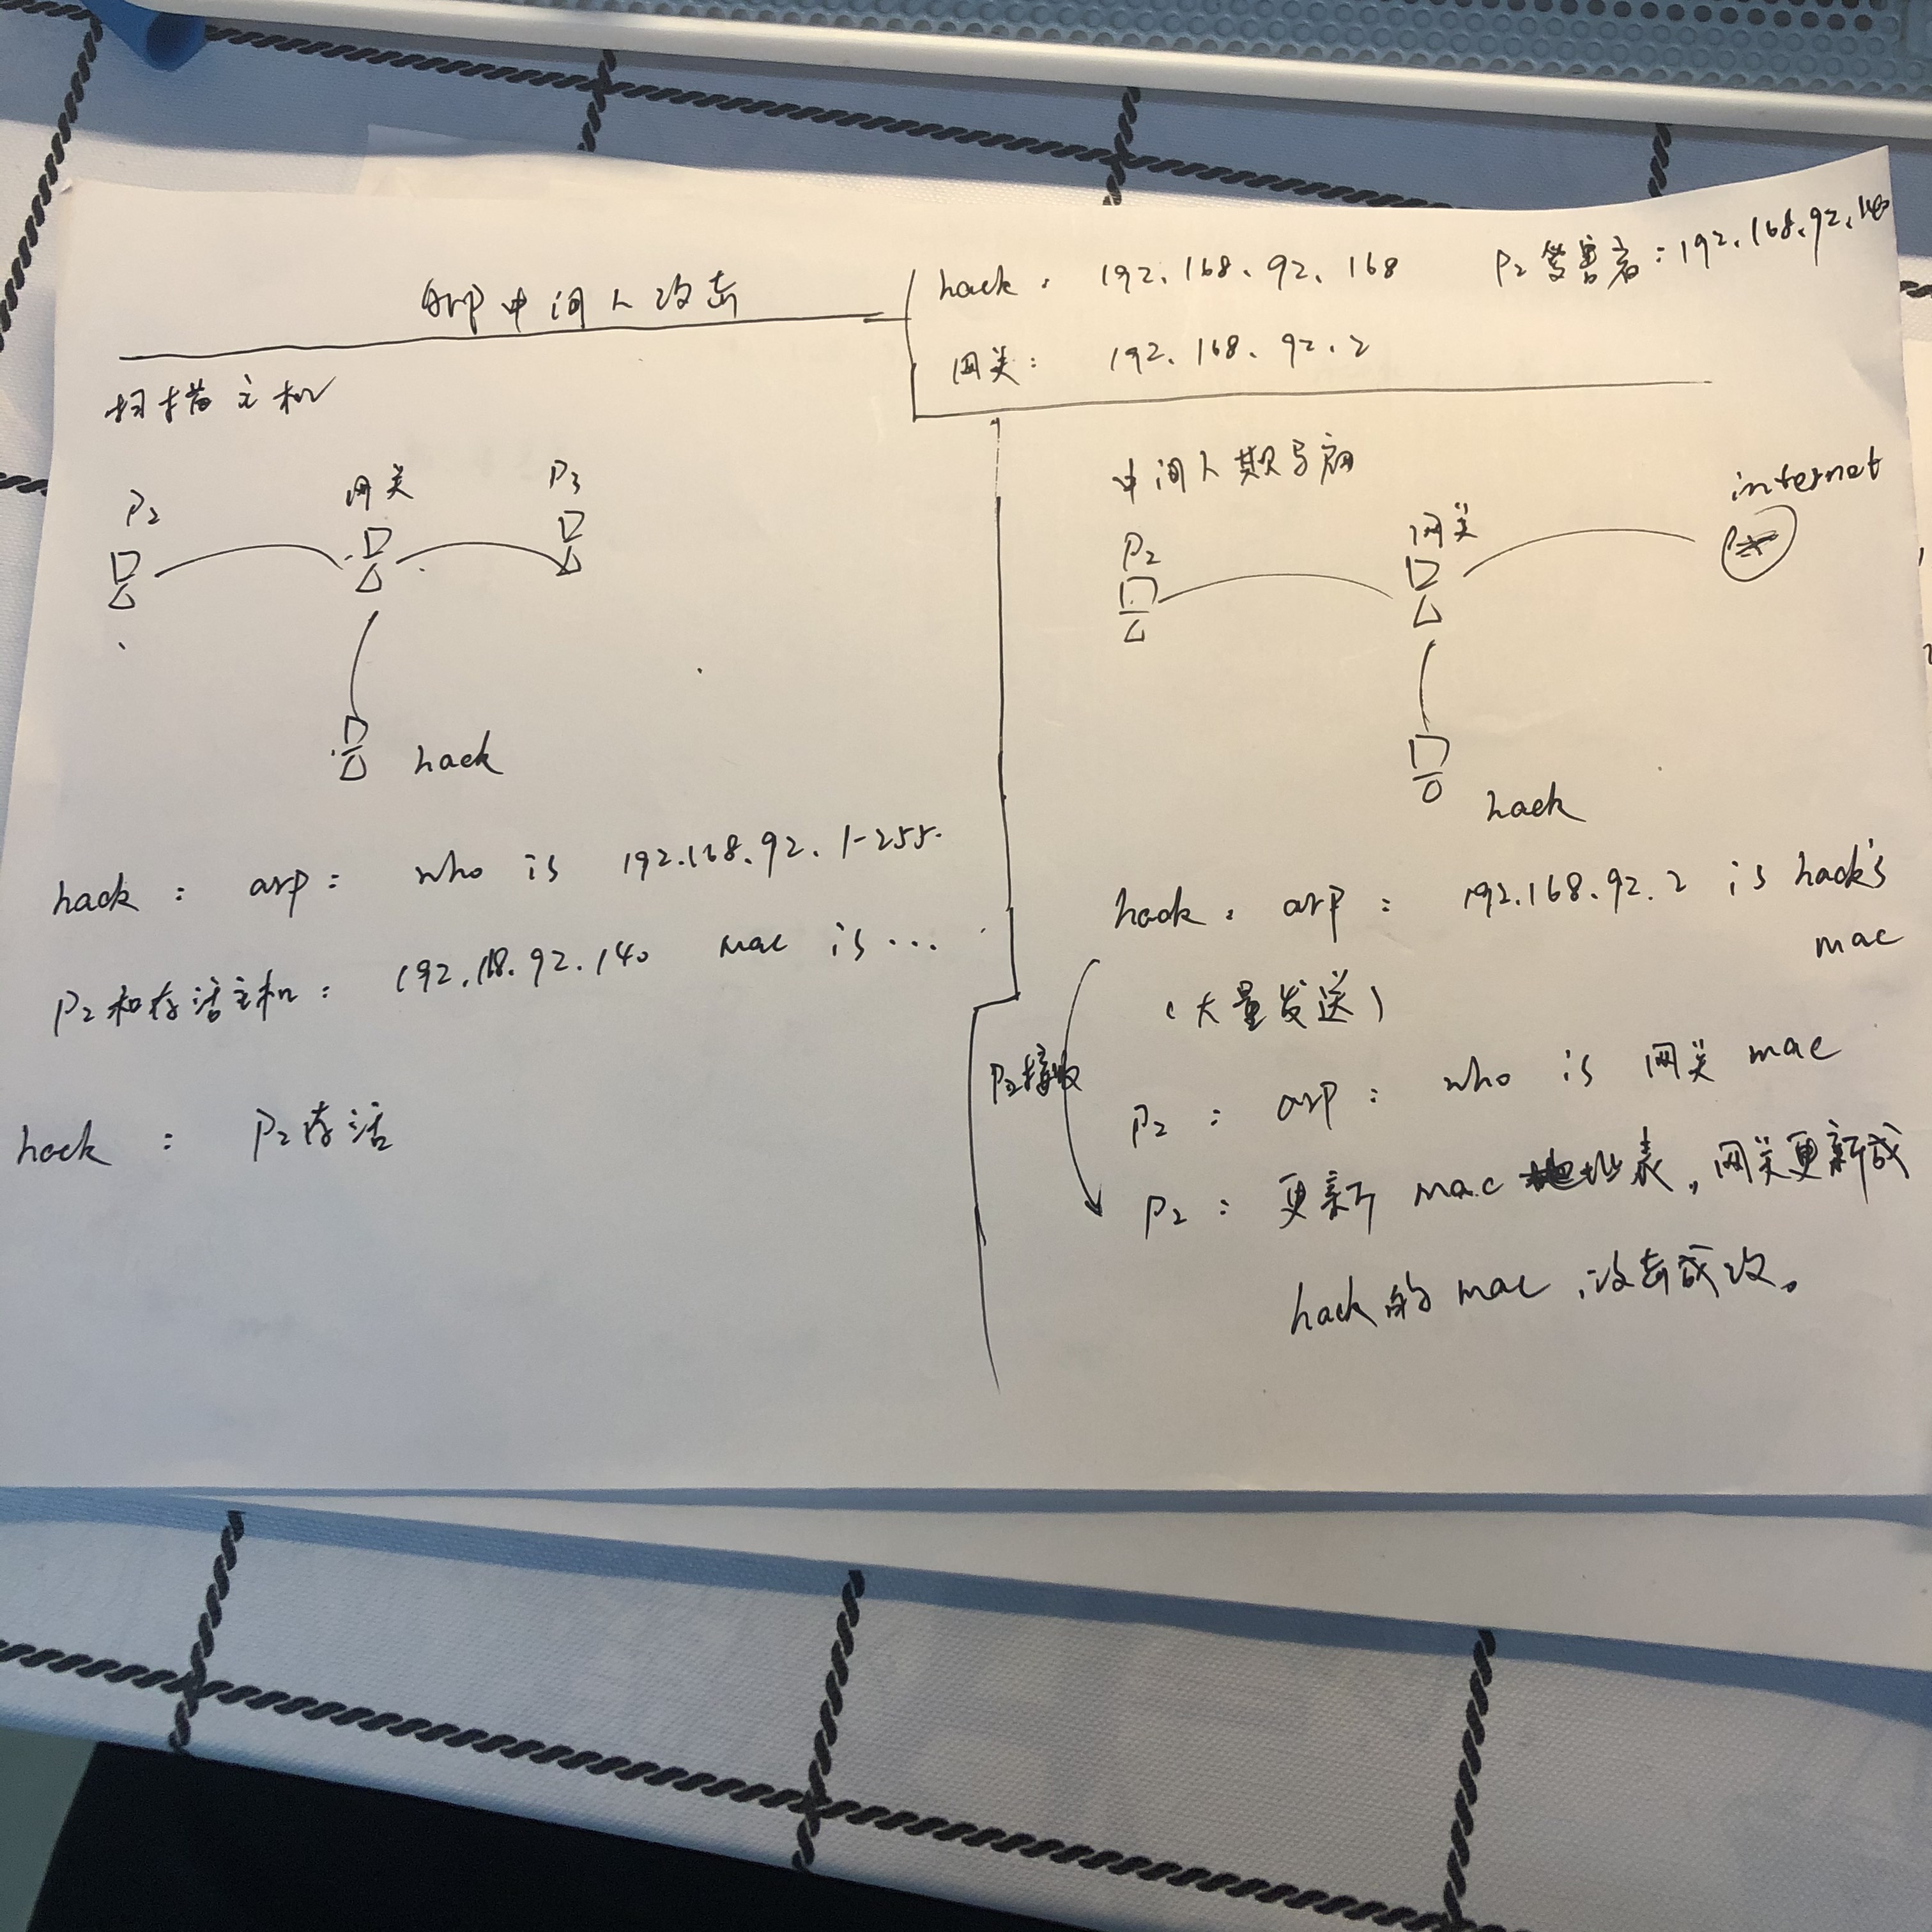 arp中间人攻击
hack: 192.168.92.168 P2受害者: 192.168.92.140
网关: 192.168.92.2
扫描主机
P2
网关
P3
hack
hack: arp: who is 192.168.92.1-255.
P2和存活主机: 192.168.92.140 mac is...
hack: P2存活
中间人
P2
网关
internet
hack
hack: arp: 192.168.92.2 is hack's
mac
(大量发送)
P2接收
P2: arp: who is 网关 mac
P2: 更新 mac 地址表,网关更新成
hack的 mac,攻击成功。